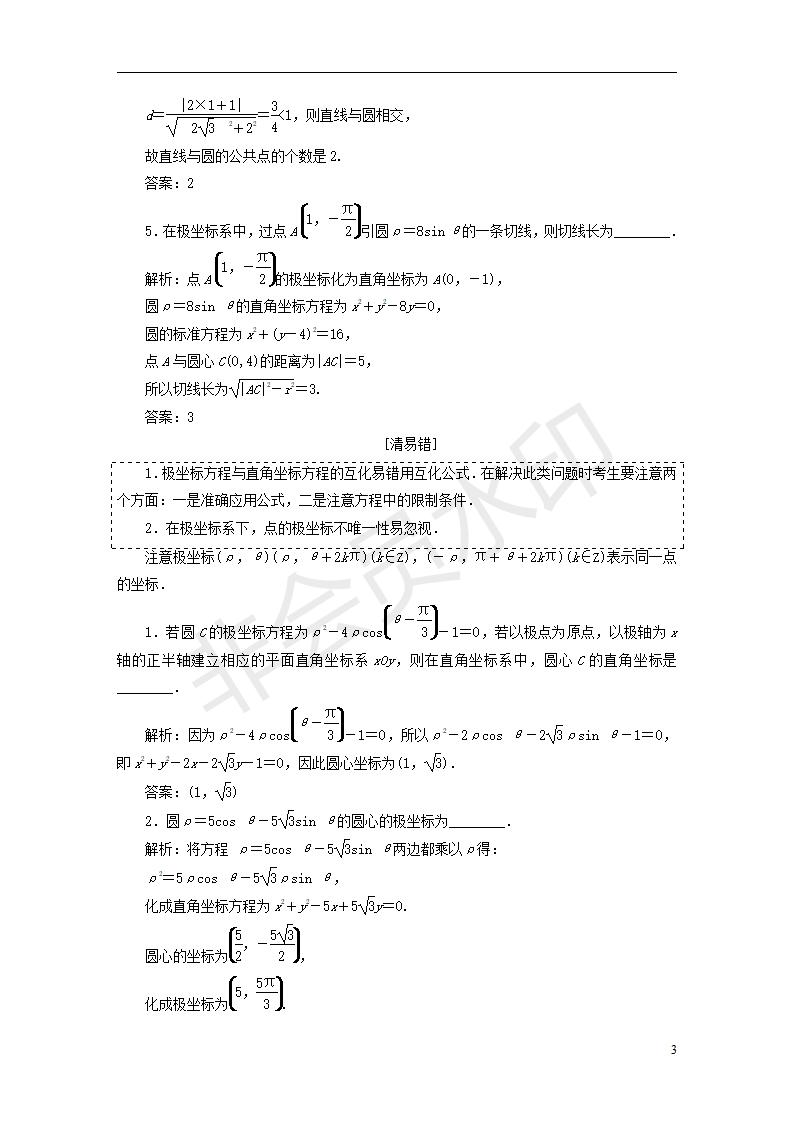 d=|2×1+1|/√(2√3 ²+2²)=3/4<1，则直线与圆相交，
故直线与圆的公共点的个数是 2.
答案：2
5．在极坐标系中，过点 A(1，－π/2)引圆ρ＝8sin θ的一条切线，则切线长为________．
解析：点 A(1，－π/2)的极坐标化为直角坐标为 A(0，－1)，
圆ρ＝8sin θ的直角坐标方程为 x²＋y²－8y＝0，
圆的标准方程为 x²＋(y－4)²＝16，
点 A 与圆心 C(0,4)的距离为|AC|＝5，
所以切线长为√(|AC|²－r²)＝3.
答案：3
[清易错]
1．极坐标方程与直角坐标方程的互化易错用互化公式．在解决此类问题时考生要注意两
个方面：一是准确应用公式，二是注意方程中的限制条件．
2．在极坐标系下，点的极坐标不唯一性易忽视．
注意极坐标(ρ，θ)(ρ，θ＋2kπ)(k∈Z)，(－ρ，π＋θ＋2kπ)(k∈Z)表示同一点
的坐标．
1．若圆 C 的极坐标方程为ρ²－4ρcos(θ－π/3)－1＝0，若以极点为原点，以极轴为 x
轴的正半轴建立相应的平面直角坐标系 xOy，则在直角坐标系中，圆心 C 的直角坐标是
________．
解析：因为ρ²－4ρcos(θ－π/3)－1＝0，所以ρ²－2ρcos θ－2√3ρsin θ－1＝0，
即 x²＋y²－2x－2√3y－1＝0，因此圆心坐标为(1，√3)．
答案：(1，√3)
2．圆ρ＝5cos θ－5√3sin θ的圆心的极坐标为________．
解析：将方程 ρ＝5cos θ－5√3sin θ两边都乘以ρ得：
ρ²＝5ρcos θ－5√3ρsin θ，
化成直角坐标方程为 x²＋y²－5x＋5√3y＝0.
圆心的坐标为(5/2，－5√3/2)，
化成极坐标为(5，5π/3)．
3
非会员水印